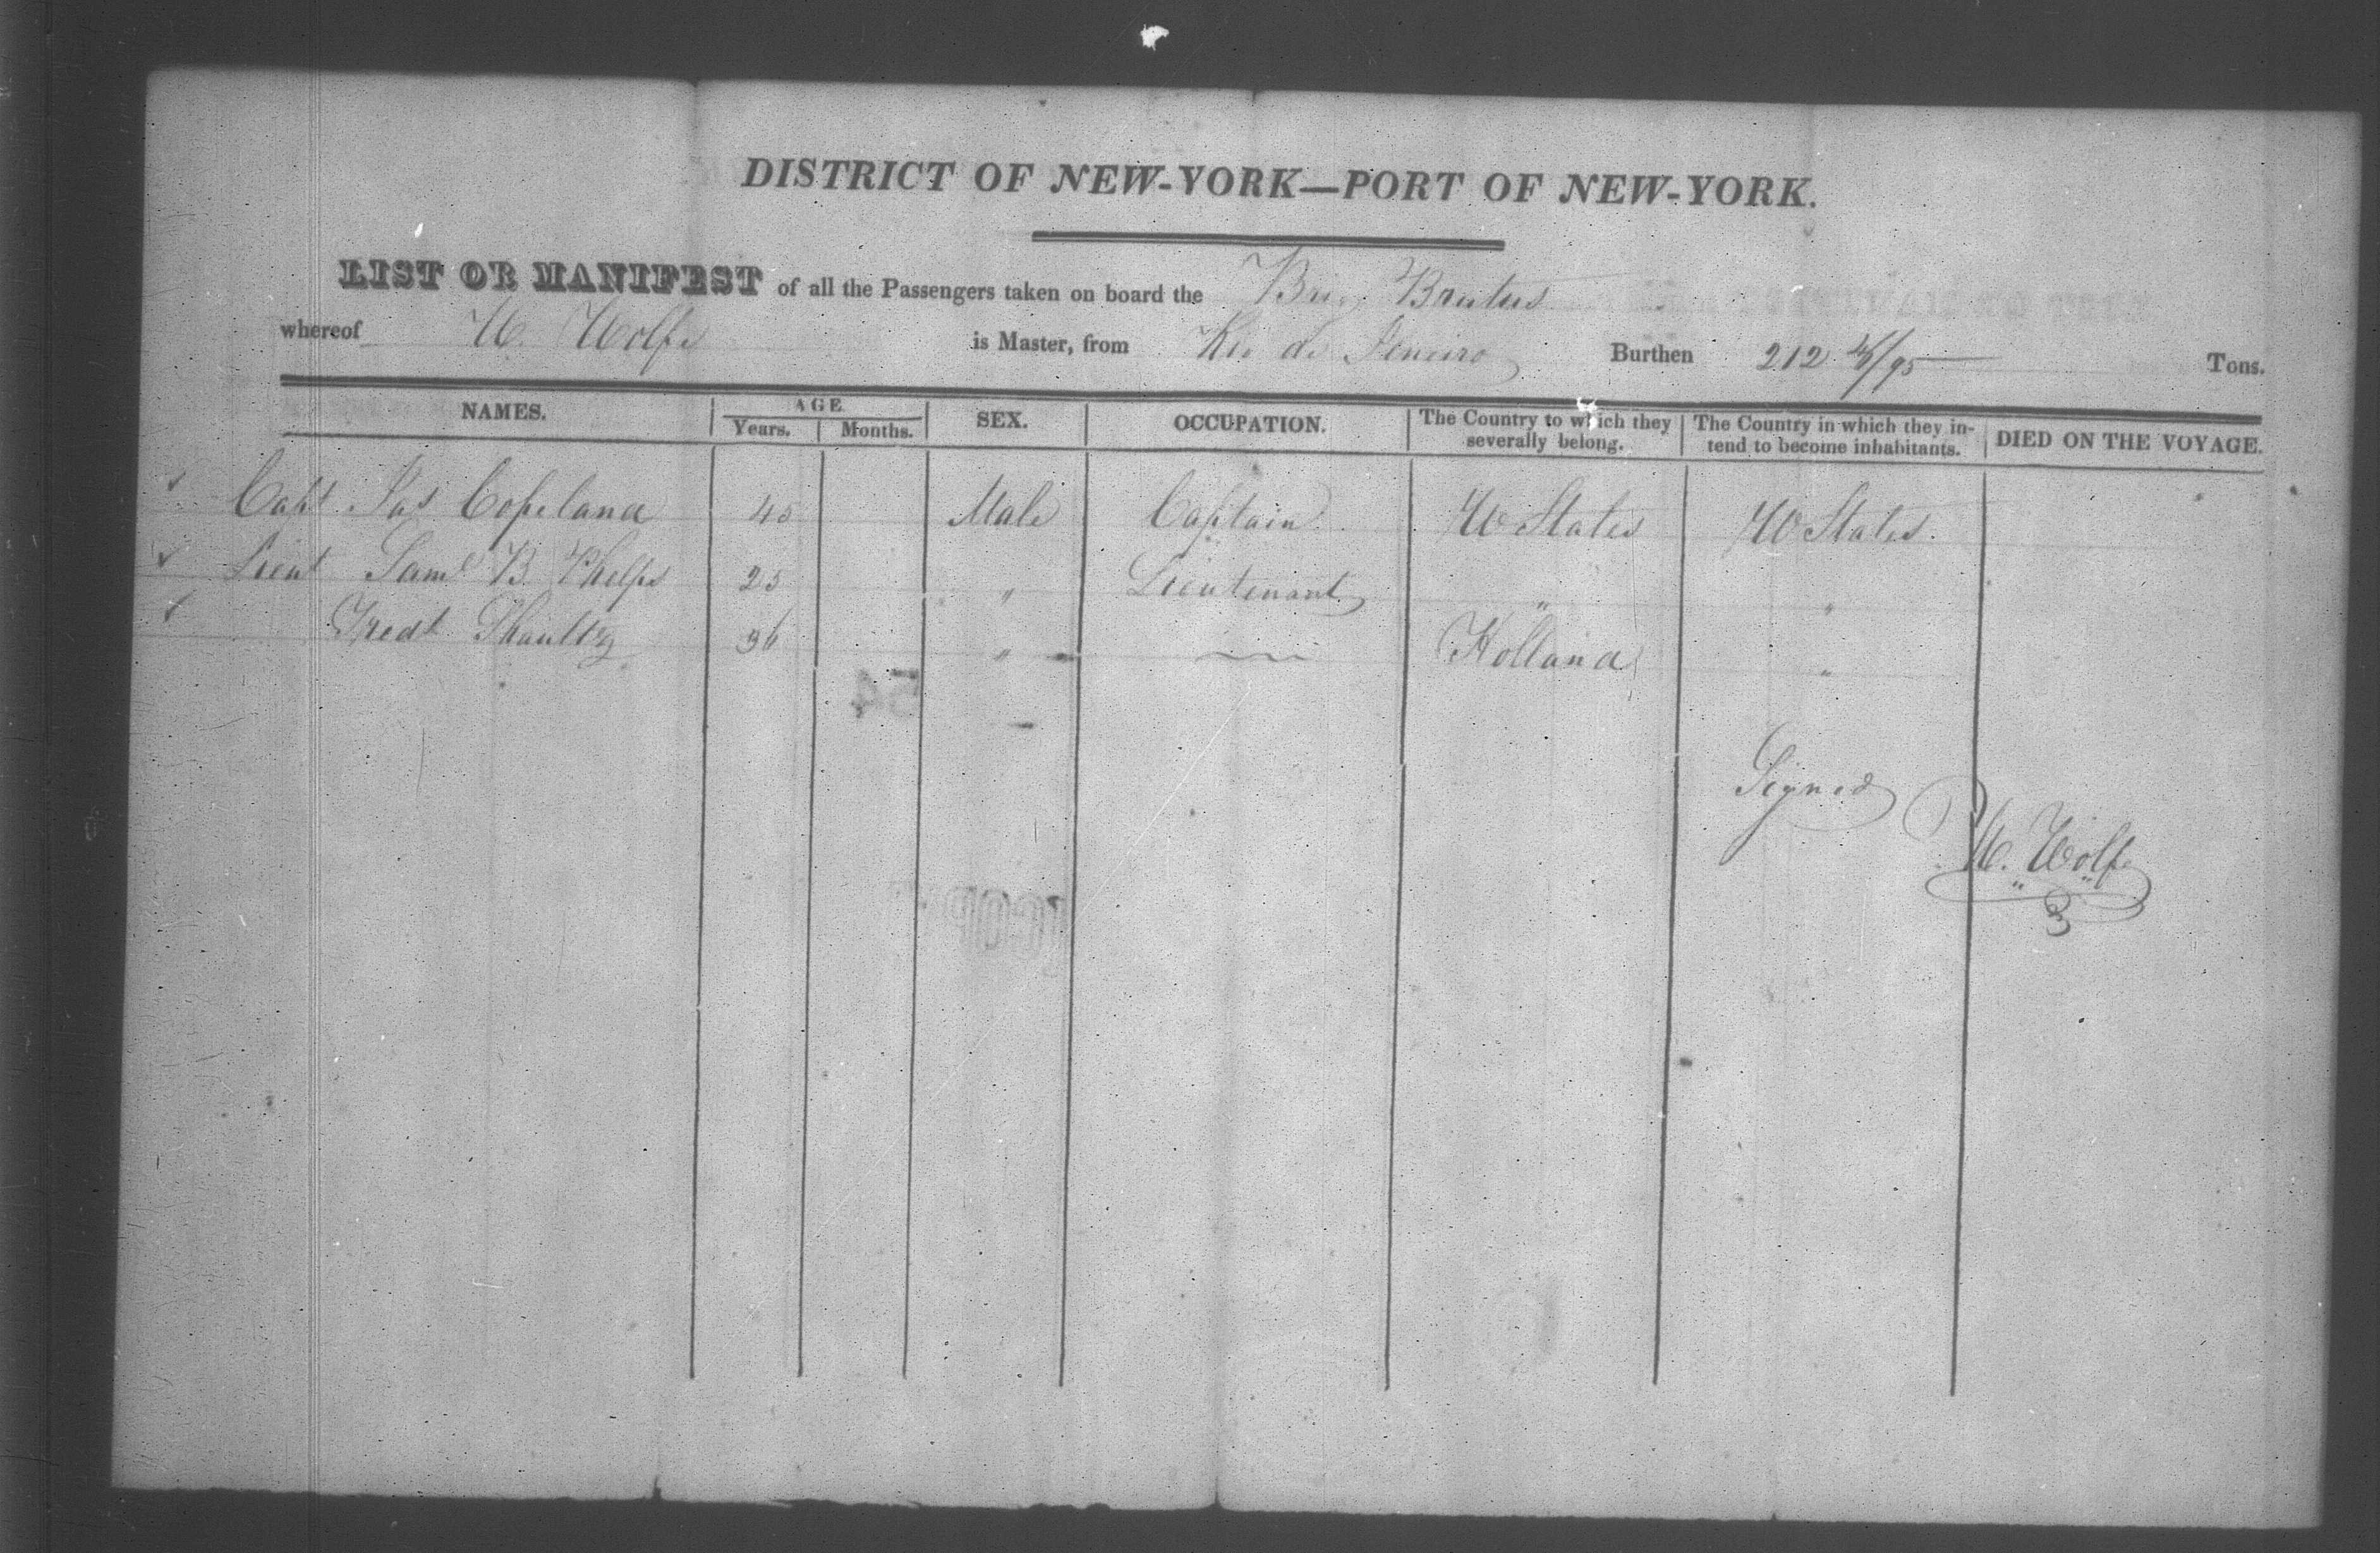 DISTRICT OF NEW-YORK—PORT OF NEW-YORK.
LIST OR MANIFEST of all the Passengers taken on board the Brig Brutus
whereof W. Wolfe is Master, from Rio de Jeneiro Burthen 212 /95 Tons.
NAMES. AGE Years. Months. SEX. OCCUPATION. The Country to which they severally belong. The Country in which they intend to become inhabitants. DIED ON THE VOYAGE.
Capt Jas Copeland 45 Male Captain U States U States.
Lieut Saml B. Phelps 25 " Lieutenant " "
Fredk Shaultz 36 " — Holland "
54
Signed
W. Wolfe